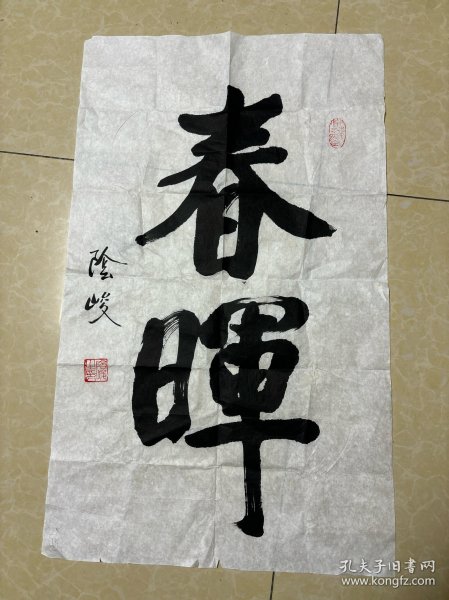 春暉
陰峻
孔夫子旧书网
www.kongfz.com